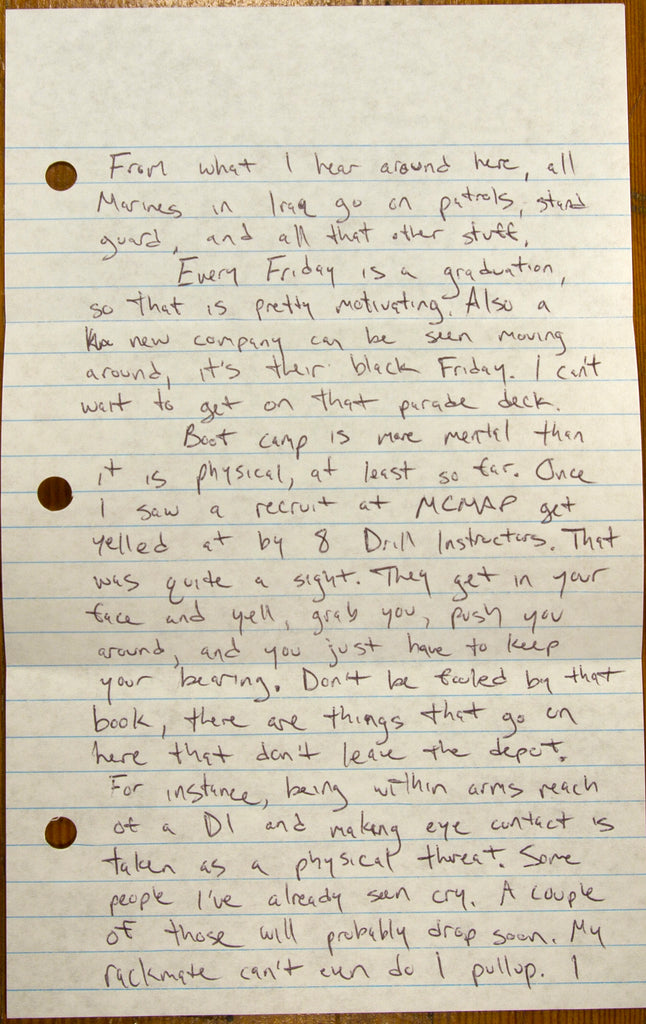 From what I hear around here, all
Marines in Iraq go on patrols, stand
guard, and all that other stuff.
Every Friday is a graduation,
so that is pretty motivating. Also a
new company can be seen moving
around, it's their black Friday. I can't
wait to get on that parade deck.
Boot camp is more mental than
it is physical, at least so far. Once
I saw a recruit at MCMAP get
yelled at by 8 Drill Instructors. That
was quite a sight. They get in your
face and yell, grab you, push you
around, and you just have to keep
your bearing. Don't be fooled by that
book, there are things that go on
here that don't leave the depot.
For instance, being within arms reach
of a DI and making eye contact is
taken as a physical threat. Some
people I've already seen cry. A couple
of those will probably drop soon. My
rackmate can't even do 1 pullup. I